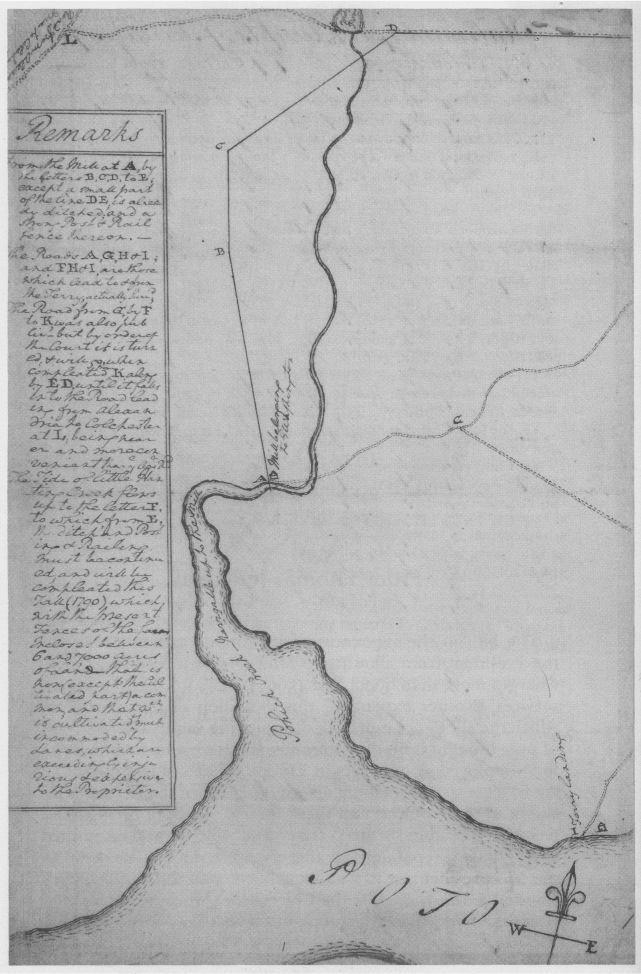 L
D
Remarks
From the Mill at A, by
the letters B, C, D, to E,
except a small part
of the line DE, is alrea
dy ditched, and a
Post & Rail
fence thereon. —
The Roads A, G, H & I,
and F H & I, are those
which lead to & from
the Ferry, actually
The Road from G, by F
to K, was also pub
lic but by order of
the Court it is turn
ed, & will go when
compleated K along
by E D, until it falls
into the Road lead
ing from Alexan
dria to Colchester
at L, being near
er and more con
venient than
The Tide of little Hun
ting Creek flows
up to the letter F,
to which from E,
the ditch and Pos
ing & Railing
must be continu
ed, and will be
compleated this
Fall (1790) which
with the present
Fences on the
Inclose between
6 and 7000 acres
of land that is
now, except the cul
tivated part, a com
mon, and that
is cultivated much
incommoded by
Lanes, which are
exceedingly inju
rious & expensive
to the Proprietor.
C
B
Mill belonging
to G. Washington
A
G
Navigable up to the Mill
Ferry landing
H
POTO
W
E